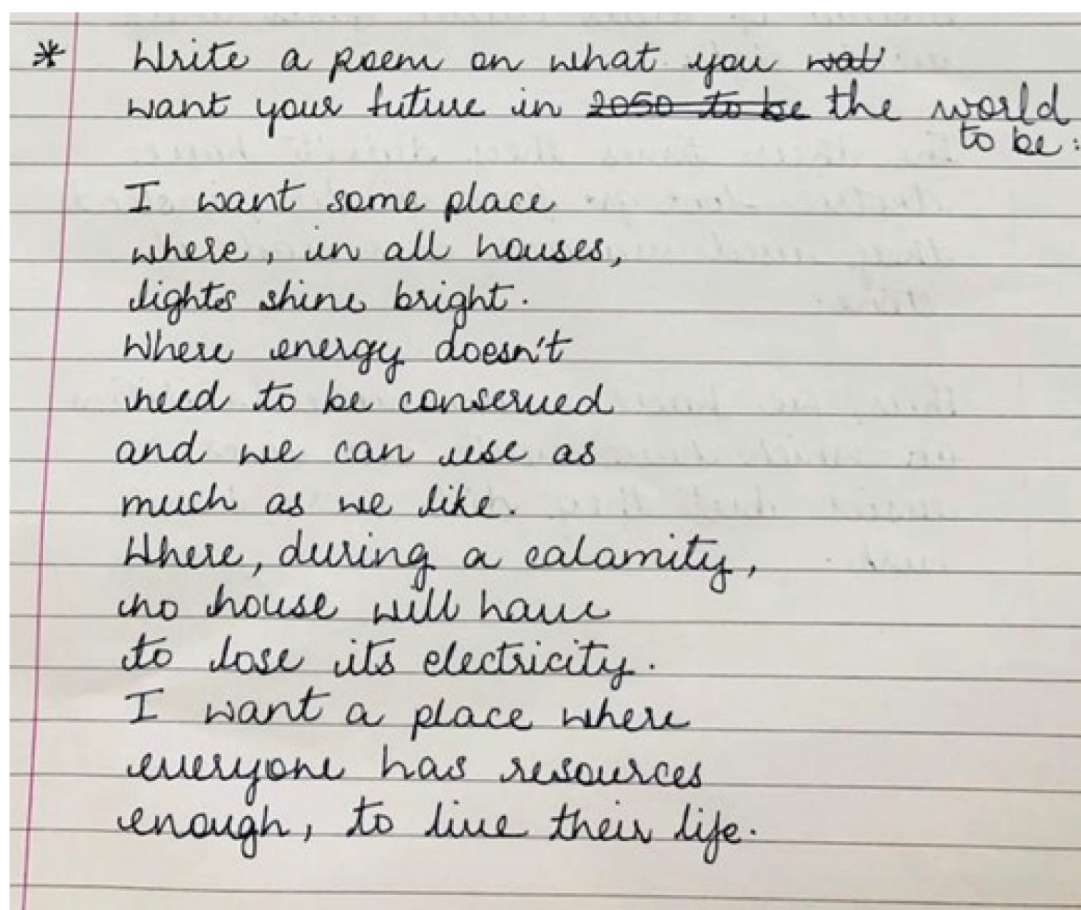 * Write a poem on what you wat
want your future in 2050 to be the world
to be:
I want some place
where, in all houses,
lights shine bright.
Where energy doesn't
need to be conserved
and we can use as
much as we like.
Where, during a calamity,
no house will have
to lose its electricity.
I want a place where
everyone has resources
enough, to live their life.